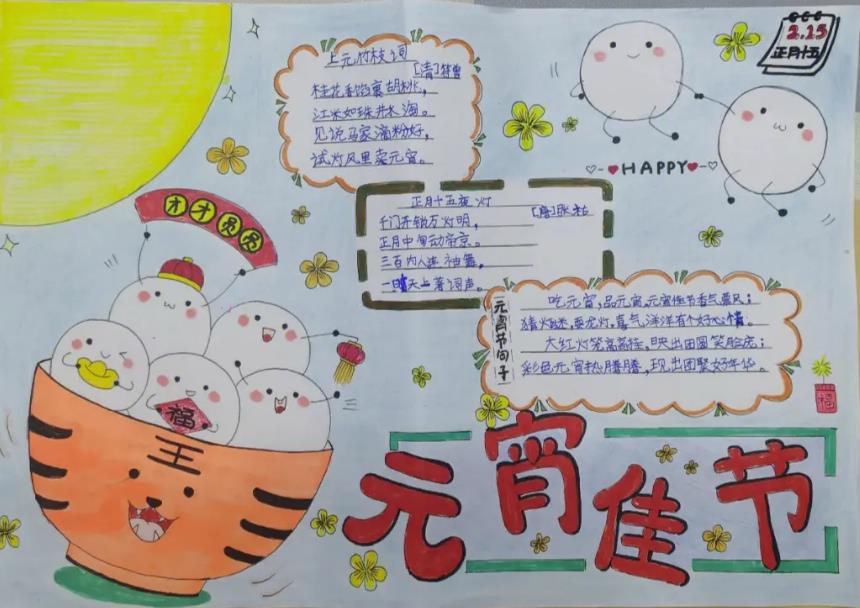 上元竹枝词
[清]符曾
桂花香馅裹胡桃，
江米如珠井水淘。
见说马家滴粉好，
试灯风里卖元宵。
2.15
正月十五
HAPPY
正月十五夜灯
[唐]张祜
千门开锁万灯明，
正月中旬动帝京。
三百内人连袖舞，
一时天上著词声。
才才圆圆
元宵节句子
吃元宵，品元宵，元宵佳节香气
猜灯谜，耍龙灯，喜气洋洋有个好心情。
大红灯笼高高挂，映出团圆笑脸庞；
彩色元宵热腾腾，现出团聚好年华。
福
福
王
元宵佳节